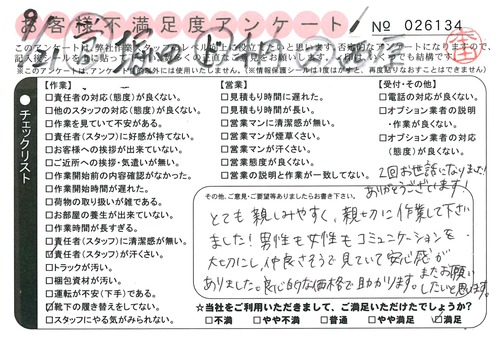 お客様不満足度アンケート
No 026134
チェックリスト
【作業】
□責任者の対応(態度)が良くない。
□他のスタッフの対応(態度)が良くない。
□作業を見ていて不安がある。
□責任者(スタッフ)に好感が持てない。
□お客様への挨拶が出来ていない。
□ご近所への挨拶・気遣いが無い。
□作業開始前の内容確認がなかった。
□作業開始時間が遅れた。
□荷物の取り扱いが雑である。
□お部屋の養生が出来ていない。
□作業時間が長すぎる。
□責任者(スタッフ)に清潔感が無い。
☑責任者(スタッフ)が汗くさい。
□トラックが汚い。
□梱包資材が汚い。
□運転が不安(下手)である。
☑靴下の履き替えをしてない。
□スタッフにやる気がみられない。
【営業】
□見積もり時間に遅れた。
□見積もり時間が長い。
□営業マンに清潔感が無い。
□営業マンが煙草くさい。
□営業マンが汗くさい。
□営業態度が良くない。
□営業の説明と作業が一致してない。
【受付・その他】
□電話の対応が良くない。
□オプション業者の説明
・作業が良くない。
□オプション業者の対応
(態度)が良くない。
2回お世話になりました!
ありがとうございます!
その他、ご意見・ご要望等ありましたらお書き下さい。
とても親しみやすく、親切に作業して下さい
ました!男性も女性もコミュニケーションを
大切にし、仲良さそうで見ていて安心感が
ありました。良心的な価格で助かります。またお願い
したいと思います。
★当社をご利用いただきまして、ご満足いただけたでしょうか?
□不満 □やや不満 □普通 □やや満足 ☑満足